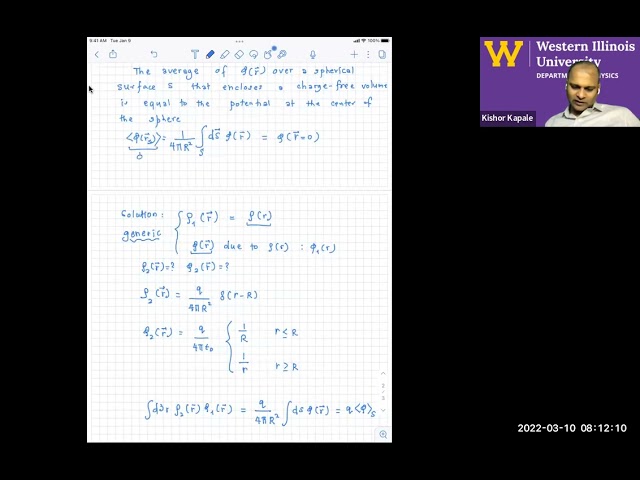 9:41 AM Tue Jan 9
100%
The average of φ(r⃗) over a spherical
surface S that encloses a charge-free volume
is equal to the potential at the center of
the sphere
⟨φ(r⃗s)⟩ = 1/4πR² ∫S ds⃗ φ(r⃗) = φ(r⃗=0)
Solution: { ρ₁(r⃗) = ρ(r)
generic φ(r⃗) due to ρ(r) : φ₁(r)
ρ₂(r⃗)=? φ₂(r⃗)=?
ρ₂(r⃗) = q/4πR² δ(r-R)
φ₂(r⃗) = q/4πε₀ { 1/R r ≤ R
1/r r ≥ R
∫d3r ρ₂(r⃗) φ₁(r⃗) = q/4πR² ∫ds φ(r⃗) = q⟨φ⟩S
W Western Illinois
University
Kishor Kapale
2022-03-10 08:12:10